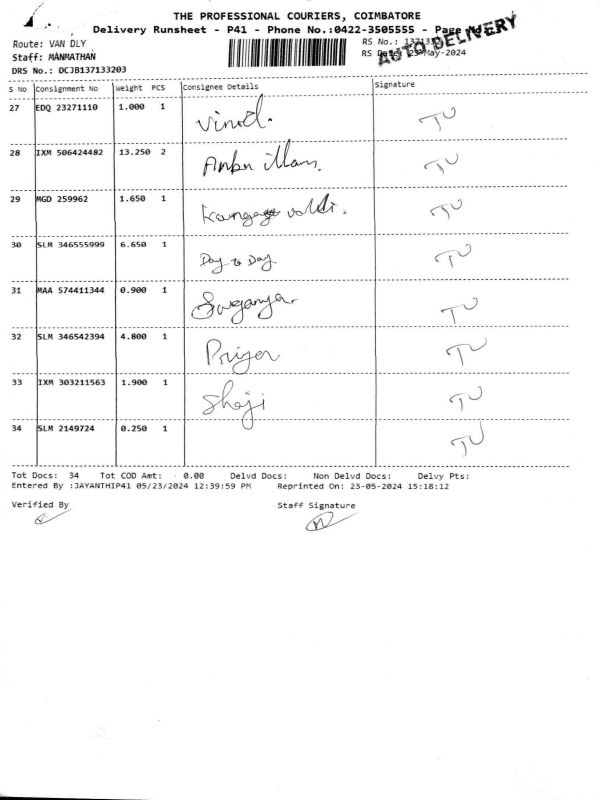 THE PROFESSIONAL COURIERS, COIMBATORE
Delivery Runsheet - P41 - Phone No.:0422-3505555 - Page
AUTO DELIVERY
Route: VAN DLY
RS No.:
Staff: MANMATHAN
RS Date: 23-May-2024
DRS No.: DCJB137133203
S No Consignment No Weight PCS Consignee Details Signature
27 EDQ 23271110 1.000 1 Vinod. TU
28 IXM 506424482 13.250 2 Anbu illam. TU
29 MGD 259962 1.650 1 TU
30 SLM 346555999 6.650 1 Day to Day. TU
31 MAA 574411344 0.900 1 Suganya. TU
32 SLM 346542394 4.800 1 Priya TU
33 IXM 303211563 1.900 1 Shaji TU
34 SLM 2149724 0.250 1 TU
Tot Docs: 34 Tot COD Amt: 0.00 Delvd Docs: Non Delvd Docs: Delvy Pts:
Entered By :JAYANTHIP41 05/23/2024 12:39:59 PM Reprinted On: 23-05-2024 15:18:12
Verified By Staff Signature